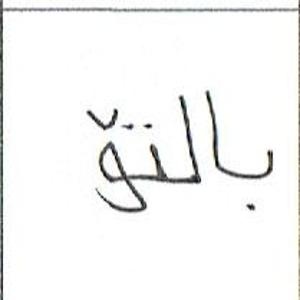 بالتۆ